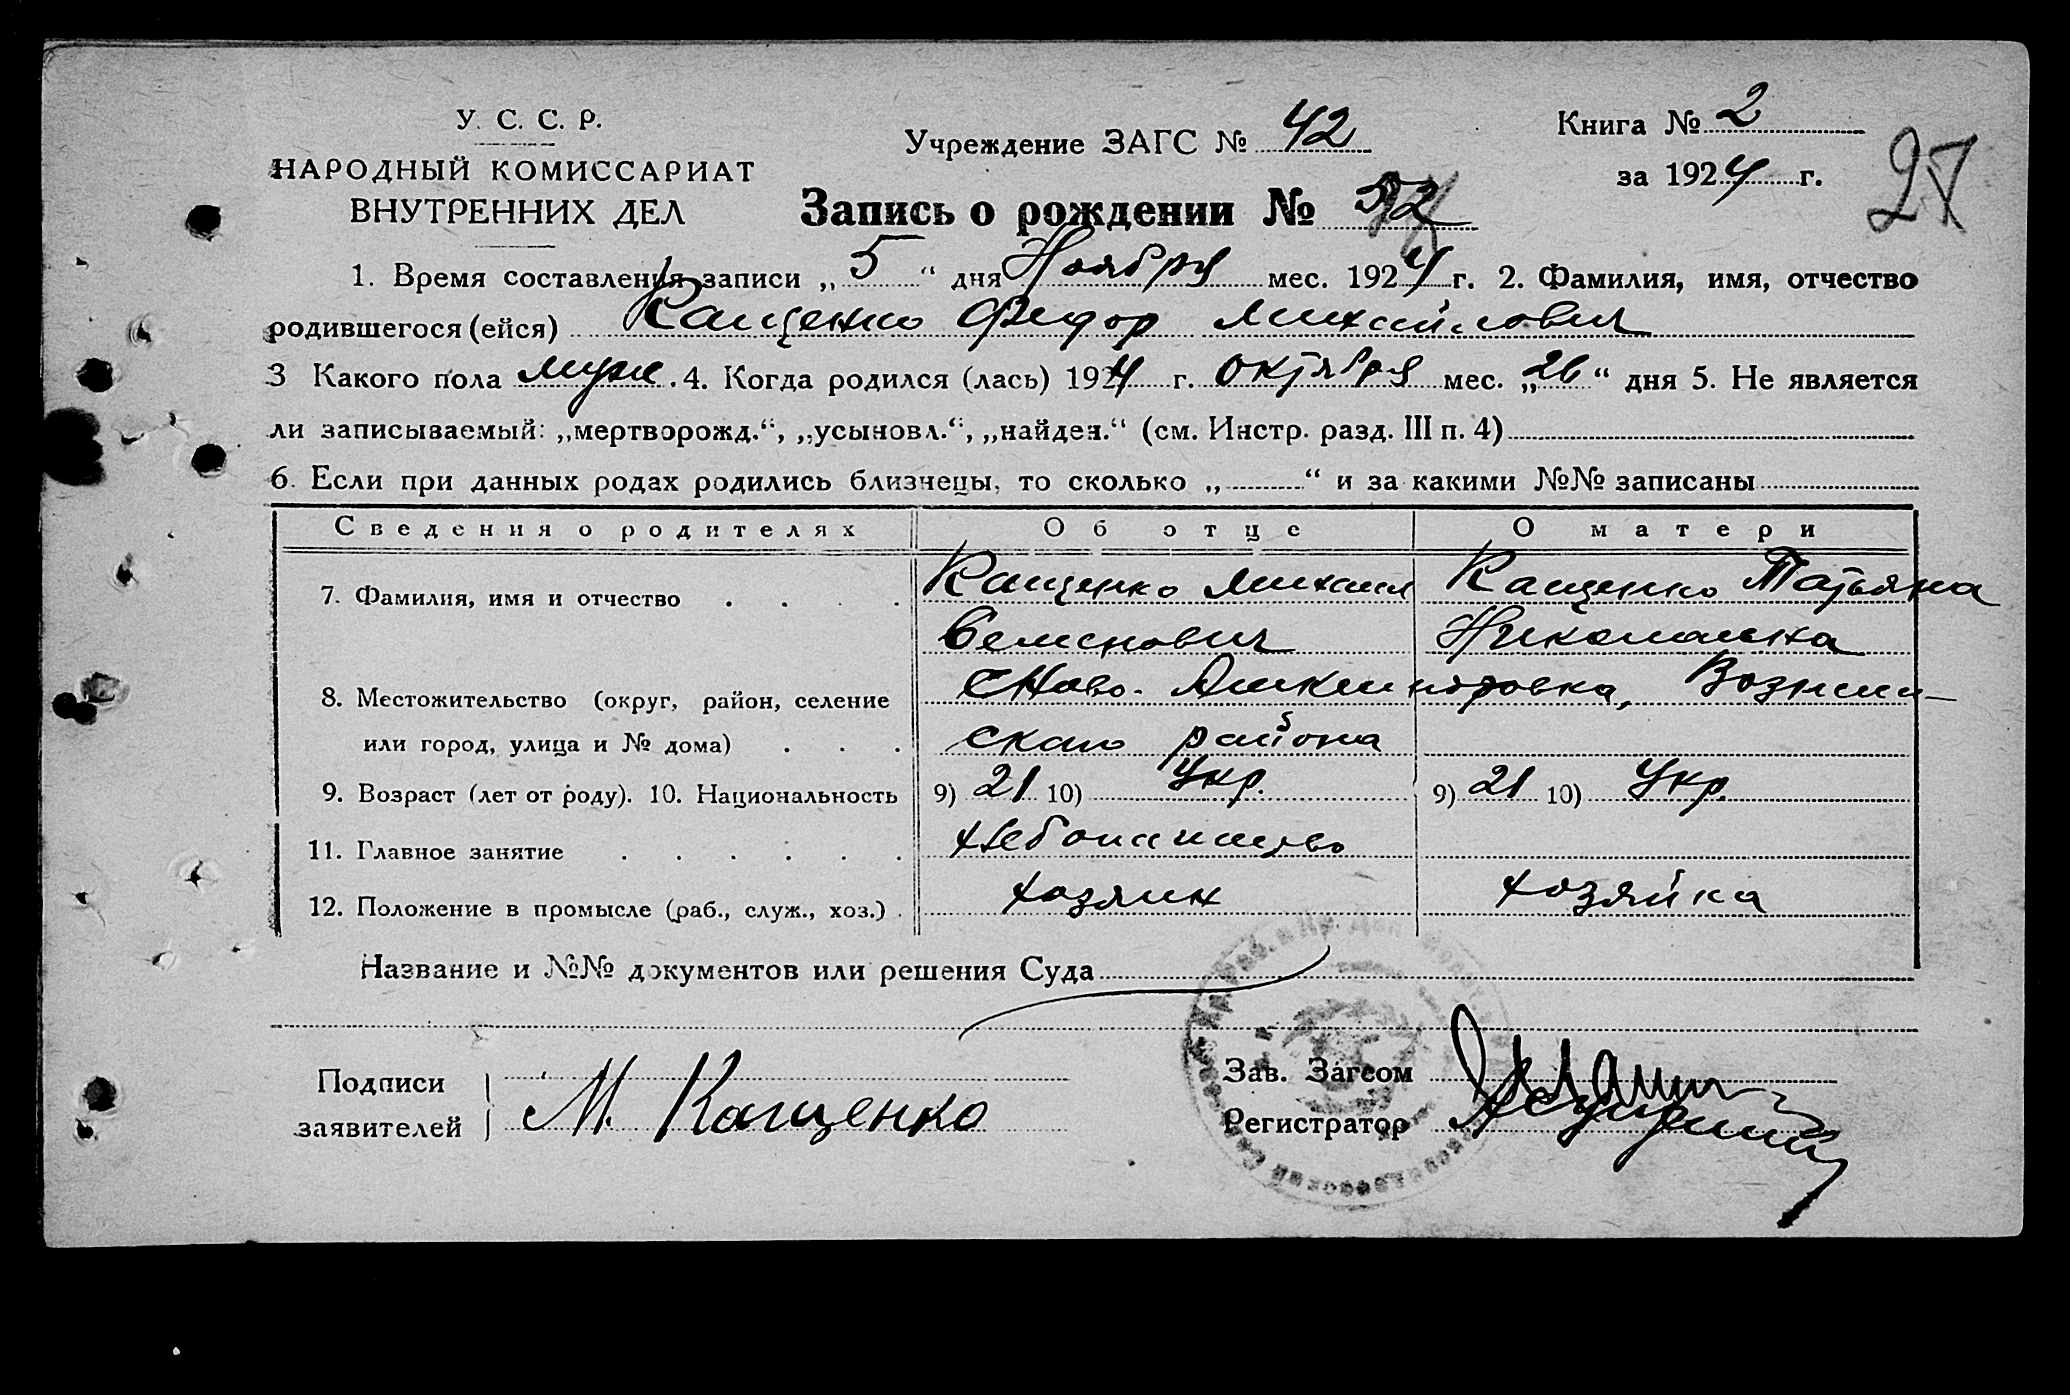 У. С. С. Р.
НАРОДНЫЙ КОМИССАРИАТ
ВНУТРЕННИХ ДЕЛ
Учреждение ЗАГС № 42
Книга № 2
за 1924 г.
27
Запись о рождении № 52
1. Время составления записи „5“ дня Ноября мес. 1924 г. 2. Фамилия, имя, отчество
родившегося (ейся) Кащенко Федор Михайлович
3 Какого пола муж. 4. Когда родился (лась) 1924 г. октября мес. „26“ дня 5. Не является
ли записываемый: „мертворожд.“, „усыновл.“, „найден.“ (см. Инстр. разд. III п. 4)
6. Если при данных родах родились близнецы, то сколько „ “ и за какими №№ записаны
Сведения о родителях Об отце О матери
7. Фамилия, имя и отчество Кащенко Михаил Кащенко Татьяна
Семенович Николаевна
8. Местожительство (округ, район, селение Вознесен-
или город, улица и № дома) скаго района
9. Возраст (лет от роду). 10. Национальность 9) 21 10) Укр. 9) 21 10) Укр.
11. Главное занятие хлебопашество
12. Положение в промысле (раб., служ., хоз.) хозяин хозяйка
Название и №№ документов или решения Суда
Подписи
заявителей М. Кащенко
Зав. Загсом
Регистратор